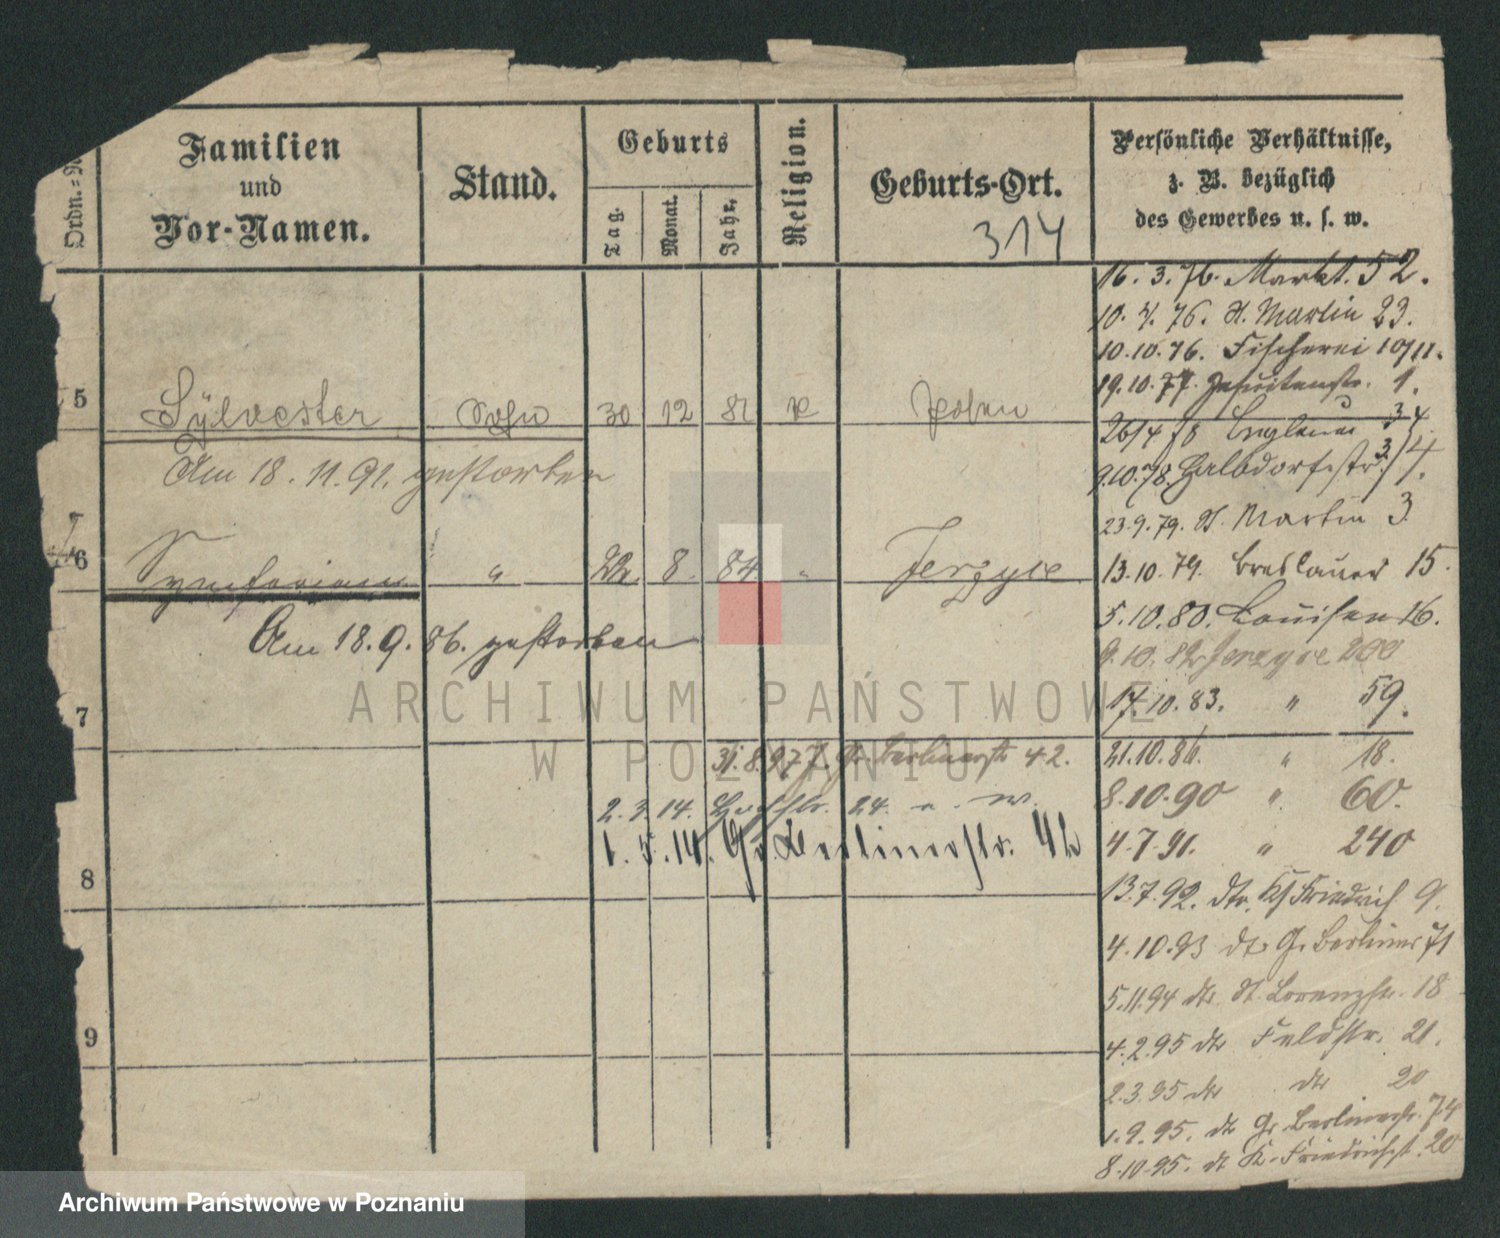 Ordn.=N
Familien
und
Vor-Namen.
Stand.
Geburts
Tag.
Monat.
Jahr.
Religion.
Geburts-Ort.
314
Persönliche Verhältnisse,
z. B. bezüglich
des Gewerbes u. s. w.
16. 3. 76. Markt. 52.
10. 4. 76. St. Martin 23.
10.10.76. Fischerei 10/11.
19.10.77. Jesuitenstr. 1.
26/4 78
9.10.78. Halbdorfstr.
23.9.79. St. Martin 3
13.10.79. Breslauer 15.
5.10.80. Louisen 16.
9.10.82 Jerzyce 200
17.10.83. " 59.
21.10.86. " 18.
8.10.90 " 60.
4.7.91. " 240
13.7.92. dto. Friedrich 9.
4.10.93 dto Gr. Berliner 71
5.11.94 dto St. Lorenzstr. 18
4.2.95 dto Feldstr. 21.
2.3.95 dto dto 20
1.9.95. dto Gr. Berlinerstr. 74
8.10.95. dt K. Friedrichst. 20
5 Sylvester Sohn 30 12 82 K Posen
Am 18.11.91. gestorben
6 Symforian " 22. 8. 84 " Jerzyce
Am 18.9.86. gestorben
7
31.8.97 Gr. Berlinerstr 42.
2.3.14. 24.
1.5.14. Gr. Berlinerstr. 42
8
9
ARCHIWUM PAŃSTWOWE
W POZNANIU
Archiwum Państwowe w Poznaniu